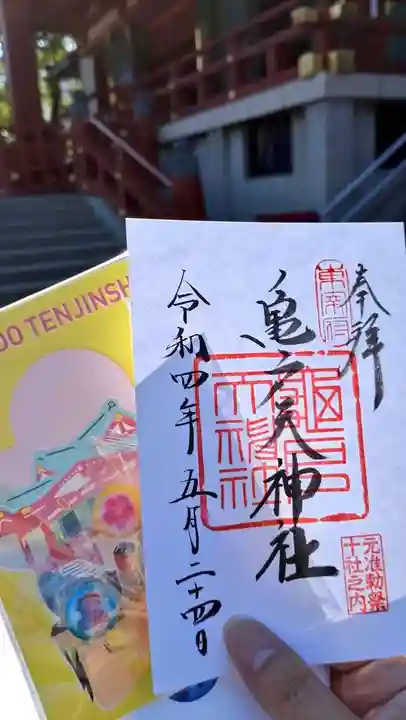 奉拝
東宰府
亀戸天神社
亀戸天神社
元准勅祭
十社之内
令和四年五月二十四日
DO TENJINSH